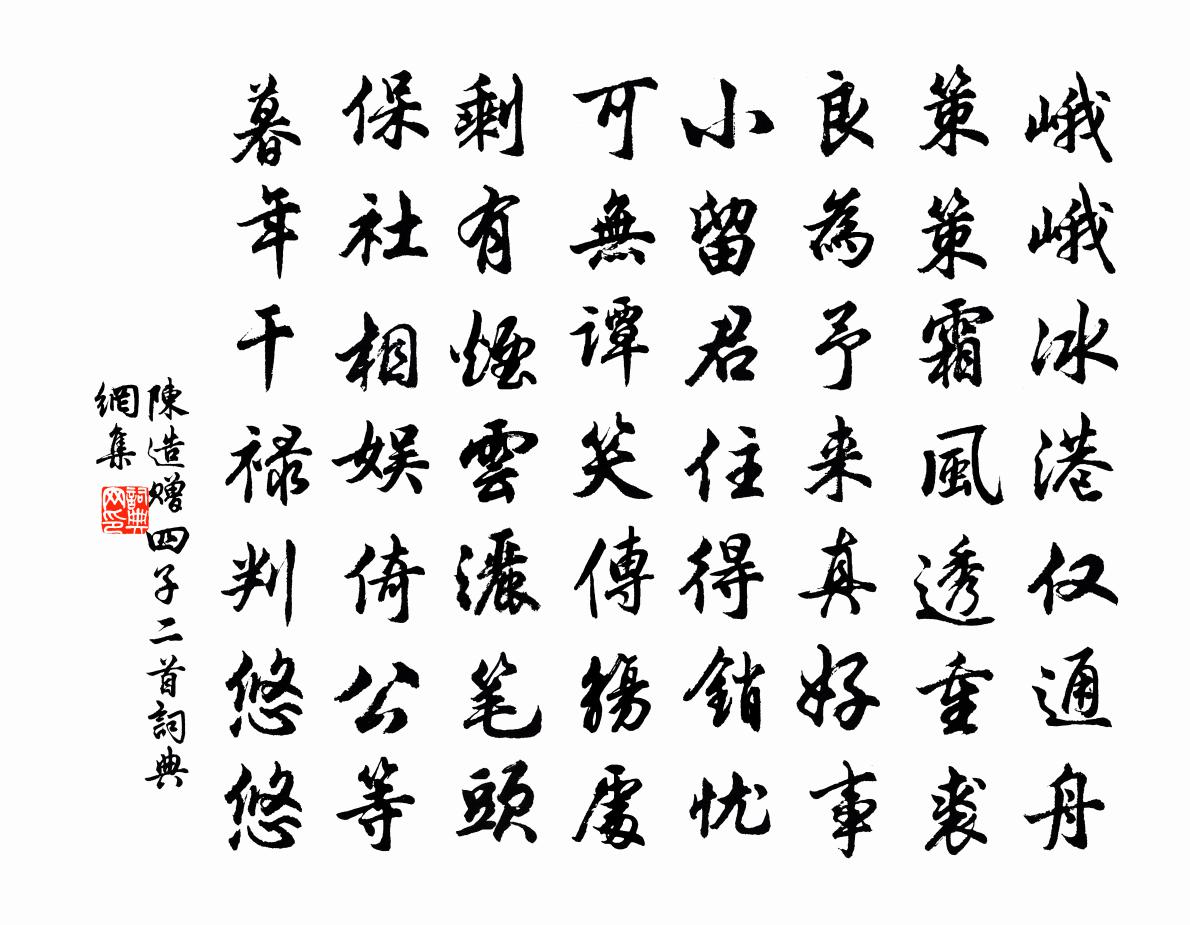 峨峨冰港仅通舟
策策霜風透重裘
良為予来真好事
小留君住得銷忧
可無譚笑傳觴處
剩有煙雲灑笔頭
保社相娱倚公等
暮年干禄判悠悠
陳造赠四子二首詞典
網集
詞典
网印